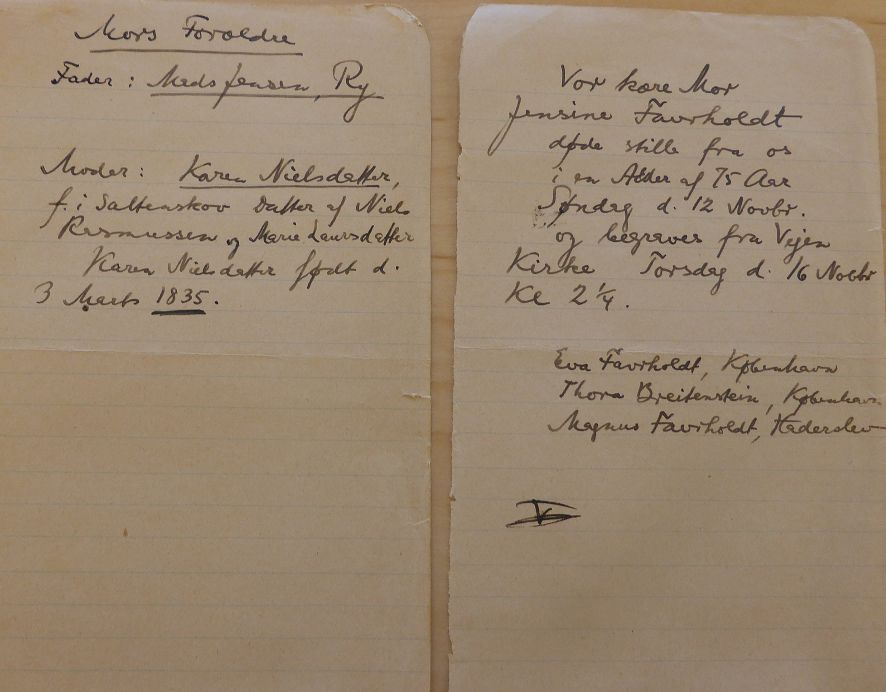 Mors Forældre
Fader: Mads Jensen, Ry
Moder: Karen Nielsdatter,
f. i Saltenskov Datter af Niels
Rasmussen og Marie Laursdatter
Karen Nielsdatter født d.
3 Marts 1835.
Vor kære Mor
Jensine Favrholdt
døde stille fra os
i en Alder af 75 Aar
Søndag d. 12 Novbr.
og begraves fra Vejen
Kirke Torsdag d. 16 Novbr
Kl 2 1/4.
Eva Favrholdt, København
Thora Breitenstein, København
Magnus Favrholdt, Haderslev